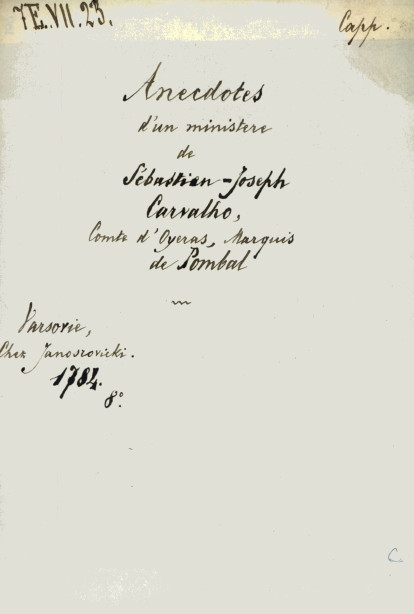 7E.VII.23.
Capp.
Anecdotes
d'un ministere
de
Sébastien-Joseph
Carvalho,
Comte d'Oyeras, Marquis
de Pombal
Varsovie,
Chez Janosrovicki.
1784.
8°.
C.